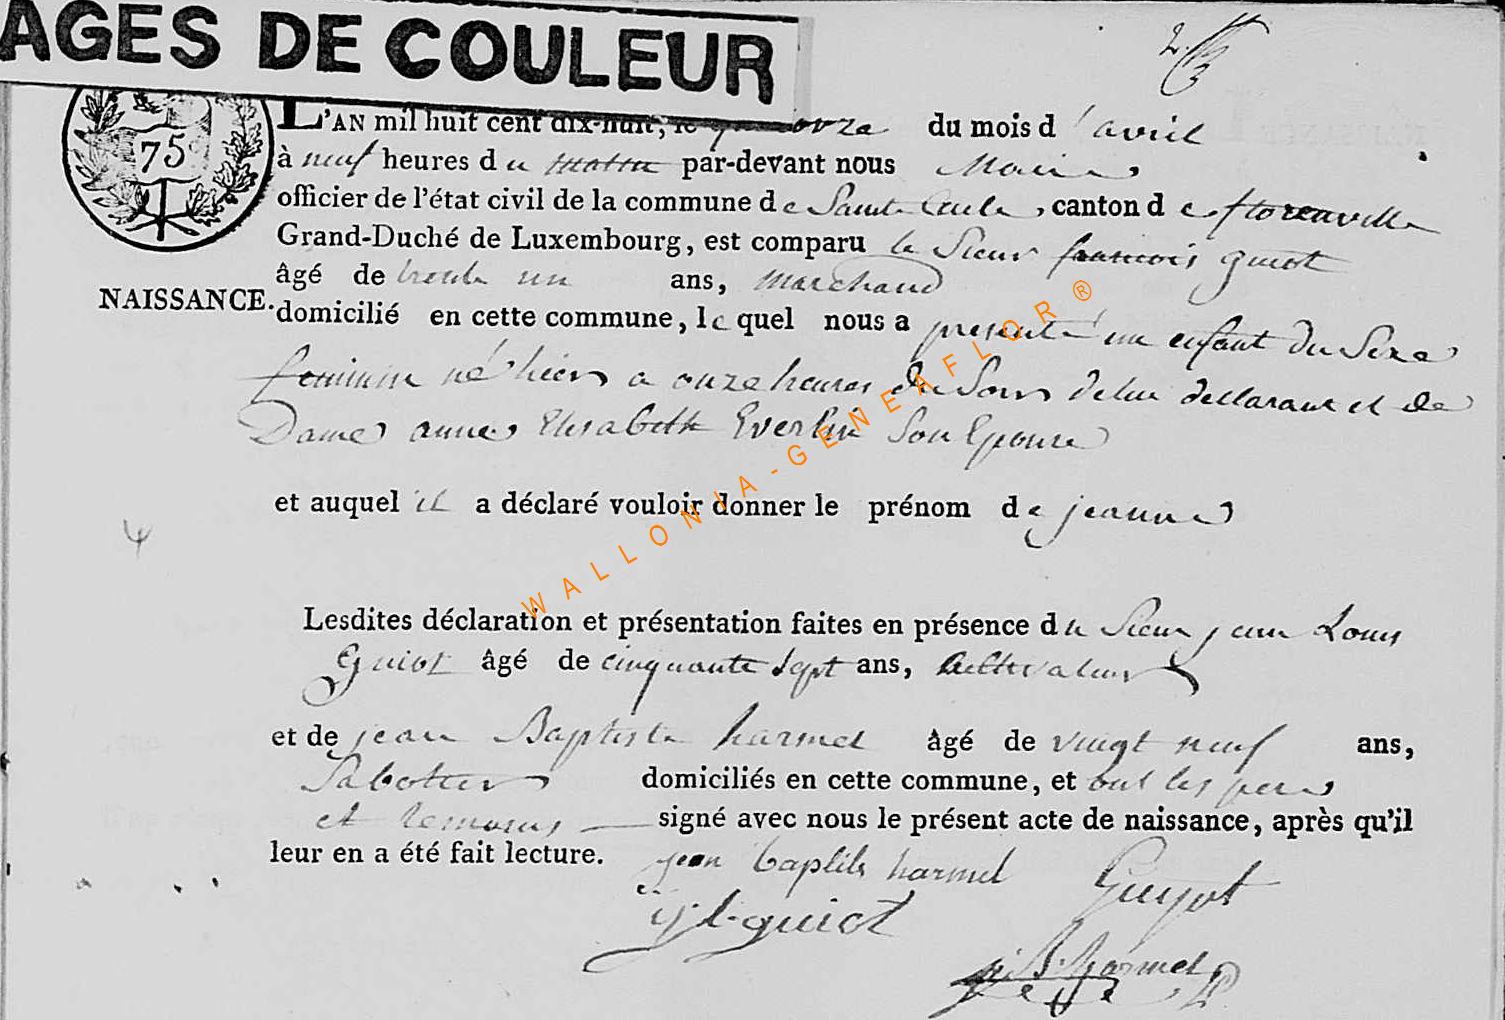 AGES DE COULEUR
2.
75
L'AN mil huit cent dix-huit, le quatorze du mois d'avril
à neuf heures du matin par-devant nous Maire
officier de l'état civil de la commune de Sainte Cécile, canton de florenville
Grand-Duché de Luxembourg, est comparu le Sieur francois guiot
âgé de trente un ans, marchand
NAISSANCE.
domicilié en cette commune, lequel nous a presenté un enfant du Sexe
feminin né hier a onze heures du Soir de lui declarant et de
Dame anne Elisabeth Everlin Son Epouse
et auquel il a déclaré vouloir donner le prénom de jeanne
Lesdites déclaration et présentation faites en présence du Sieur jean Louis
Guiot âgé de cinquante sept ans, Cultivateur
et de jean Baptiste harmel âgé de vingt neuf ans,
Sabotier domiciliés en cette commune, et ont les pere
et temoins signé avec nous le présent acte de naissance, après qu'il
leur en a été fait lecture.
jean baptiste harmel Guyot
j. l. guiot
j. B. harmel
WALLONIA-GENEAFLOR ®